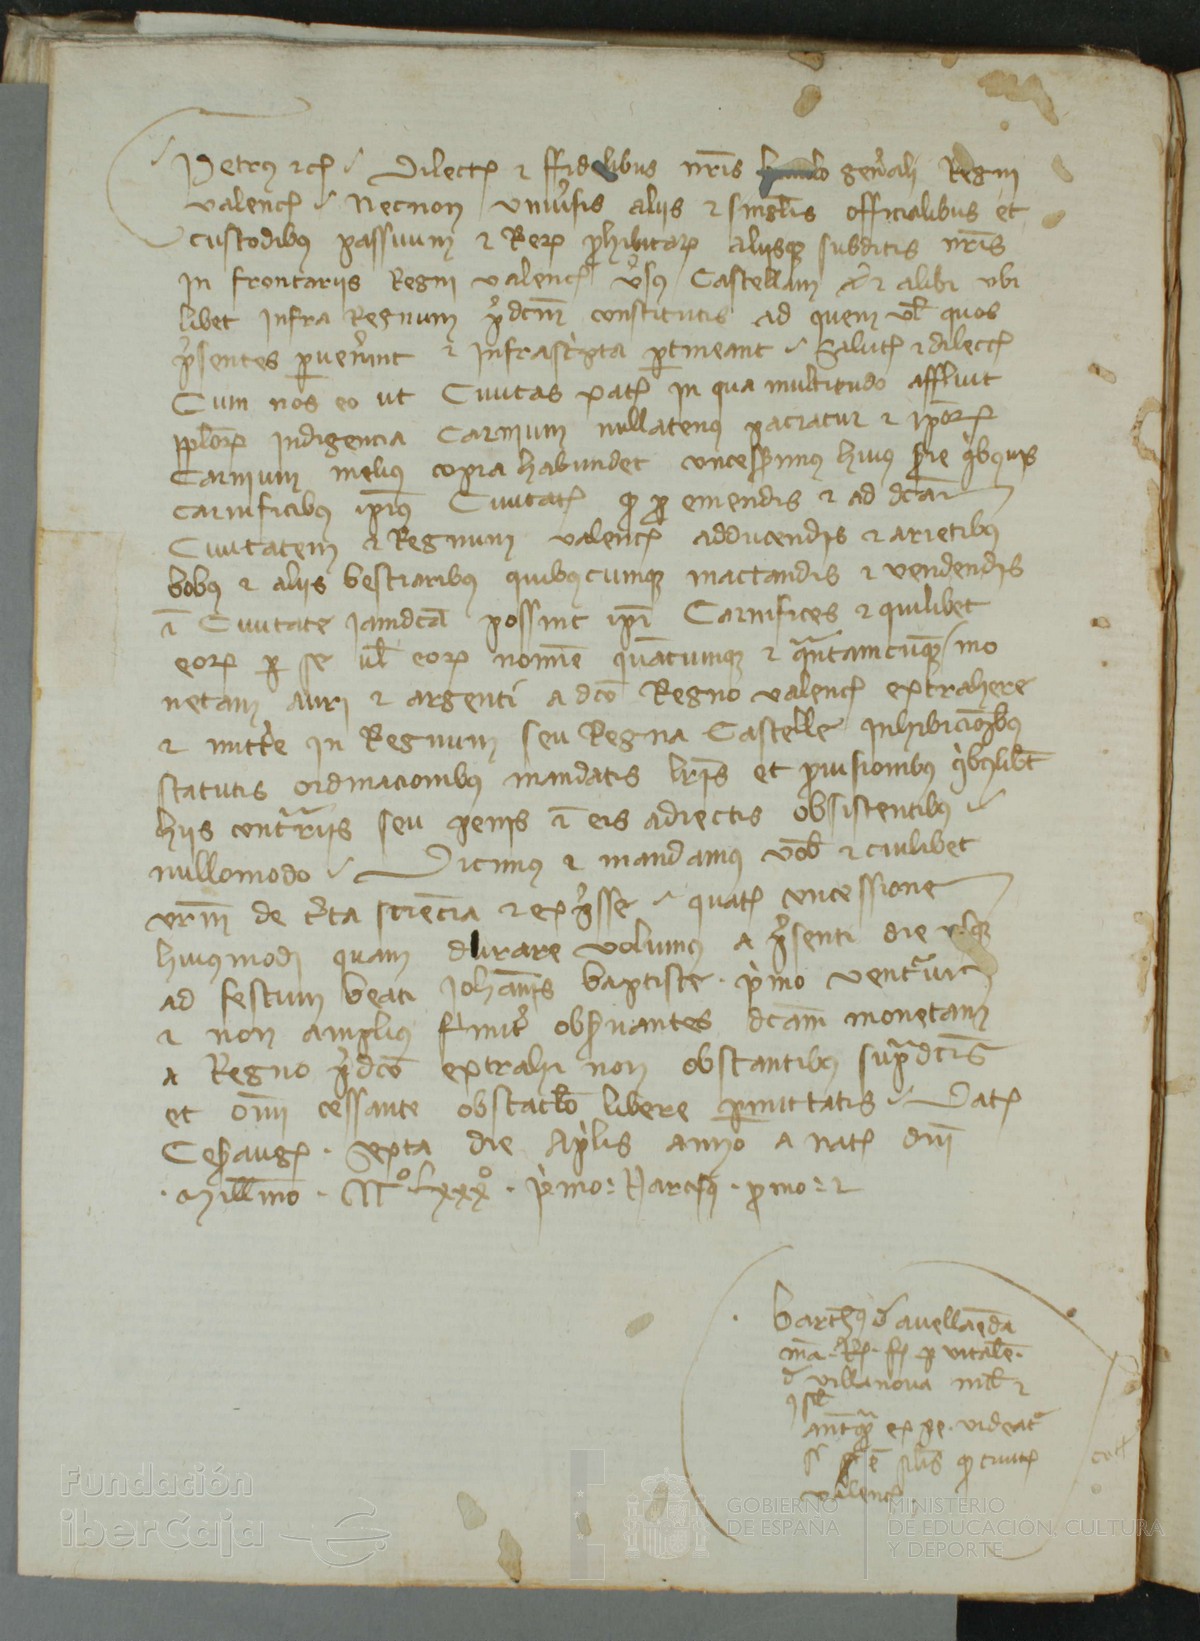 Petrus etc Dilectis et ffidelibus nris gen'ali Regni
valenc' Necnon univ'sis aliis et singlis officialibus et
custodibus passuum et Rerum phibitarum aliisque subditis nris
in frontariis Regni valenc' v'sus Castellam et alibi ubi
libet infra Regnum p'dcm constitutis ad quem vl quos
p'sentes pven'int et infrascripta ptineant Salut' et dilecc'
Cum nos eo ut Civitas in qua multitudo affluit
pplor' indigencia Carnium nullatenus paciatur et ipor'
Carnium melius copia habundet concesserimus huius serie
carnificibus ipius Civitat' p emendis et ad dcam
Civitatem et Regnum valenc' adducendis et arietibus
bobus et aliis bestiaribus quibuscumque mactandis et vendendis
i Civitate iamdca possint ipi Carnifices et quilibet
eor' p se vl eor' nomie quacumque et quantamcumque mo
netam auri et argenti a dco Regno valenc' extrahere
et mitt'e in Regnum seu Regna Castelle inhibicionibus
statutis ordinacionibus mandatis lris et pvisionibus quibuslibet
hiis contrariis seu penis i eis adiectis obsistentibus
nullomodo Dicimus et mandamus vob et cuilibet
vrm de c'ta sciencia et exp'sse quat' concessione
huiusmodi quam durare volumus a p'senti die usque
ad festum beati Johannis baptiste primo venturum
et non amplius firmit' observantes dcam monetam
a Regno p'dco extrahi non obstantibus supradcis
et omi cessante obstaclo libere pmittatis Dat'
Cesaraug' sexta die Aprilis anno a nat' dni
Millmo CCCº Lxxxº primo Narcisus pmo
barth'us d avellaneda
ma R' f' p vitale
d villanova mil et
cosil
ex ge videat'
civit'
valenc'
Fundación
iberCaja
GOBIERNO
DE ESPAÑA
MINISTERIO
DE EDUCACIÓN, CULTURA
Y DEPORTE